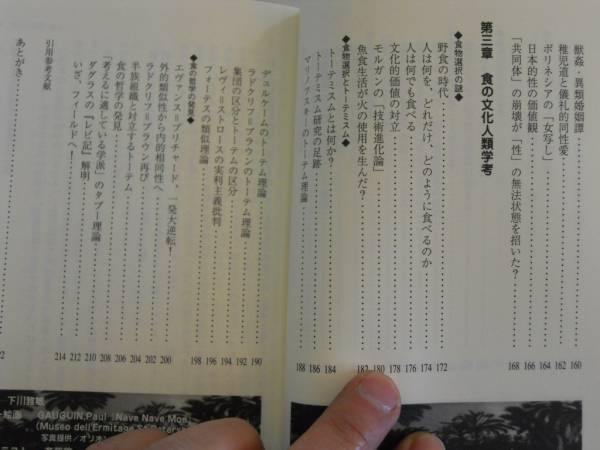 獣姦・異類婚姻譚 160
稚児道と儀礼的同性愛 162
ポリネシアの「女写し」 164
日本的性の価値観 166
「共同体」の崩壊が「性」の無法状態を招いた? 168
第三章 食の文化人類学考
◆食物選択の謎◆
野食の時代 172
人は何を、どれだけ、どのように食べるのか 174
人は何でも食べる 176
文化的価値の対立 178
モルガンの「技術進化論」 180
魚食生活が火の使用を生んだ? 182
◆食物選択とトーテミズム◆
トーテミズムとは何か? 184
トーテミズム研究の足跡 186
マリノフスキーのトーテム理論 188
デュルケームのトーテム理論 190
ラドクリフ=ブラウンのトーテム理論 192
集団の区分とトーテムの区分 194
レヴィ=ストロースの実利主義批判 196
フォーテスの類似理論 198
◆食の哲学の発見◆
エヴァンス=プリチャード、一発大逆転! 200
外的類似性から内的相同性へ 202
ラドクリフ=ブラウン再び 204
半族組織と対立するトーテム 206
食の哲学の発見 208
「考えるに適している学派」のタブー理論 210
ダグラスの『レビ記』解明 212
いざ、フィールドへ! 214
引用参考文献
あとがき
下川雅嗣
絵画 GAUGUIN, Paul : Nave Nave Moe
(Museo dell'Ermitage
写真提供/オリオン